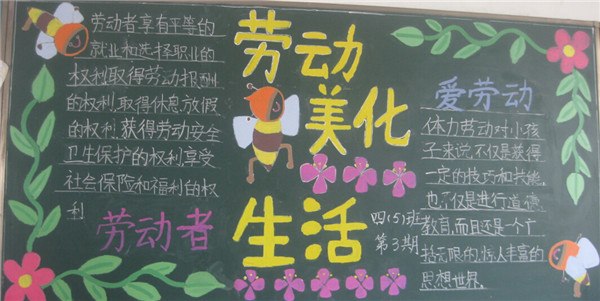 劳动者享有平等的
就业和选择职业的
权利取得劳动报酬
的权利,取得休息放假
的权利.获得劳动安全
卫生保护的权利享受
社会保险和福利的权
利
劳动者
劳动
美化
生活
四(5)班
第3期
爱劳动
体力劳动对小孩
子来说,不仅是获得
一定的技巧和技能,
也不仅是进行道德
教育,而且还是一个广
阔无限的,惊人丰富的
思想世界。